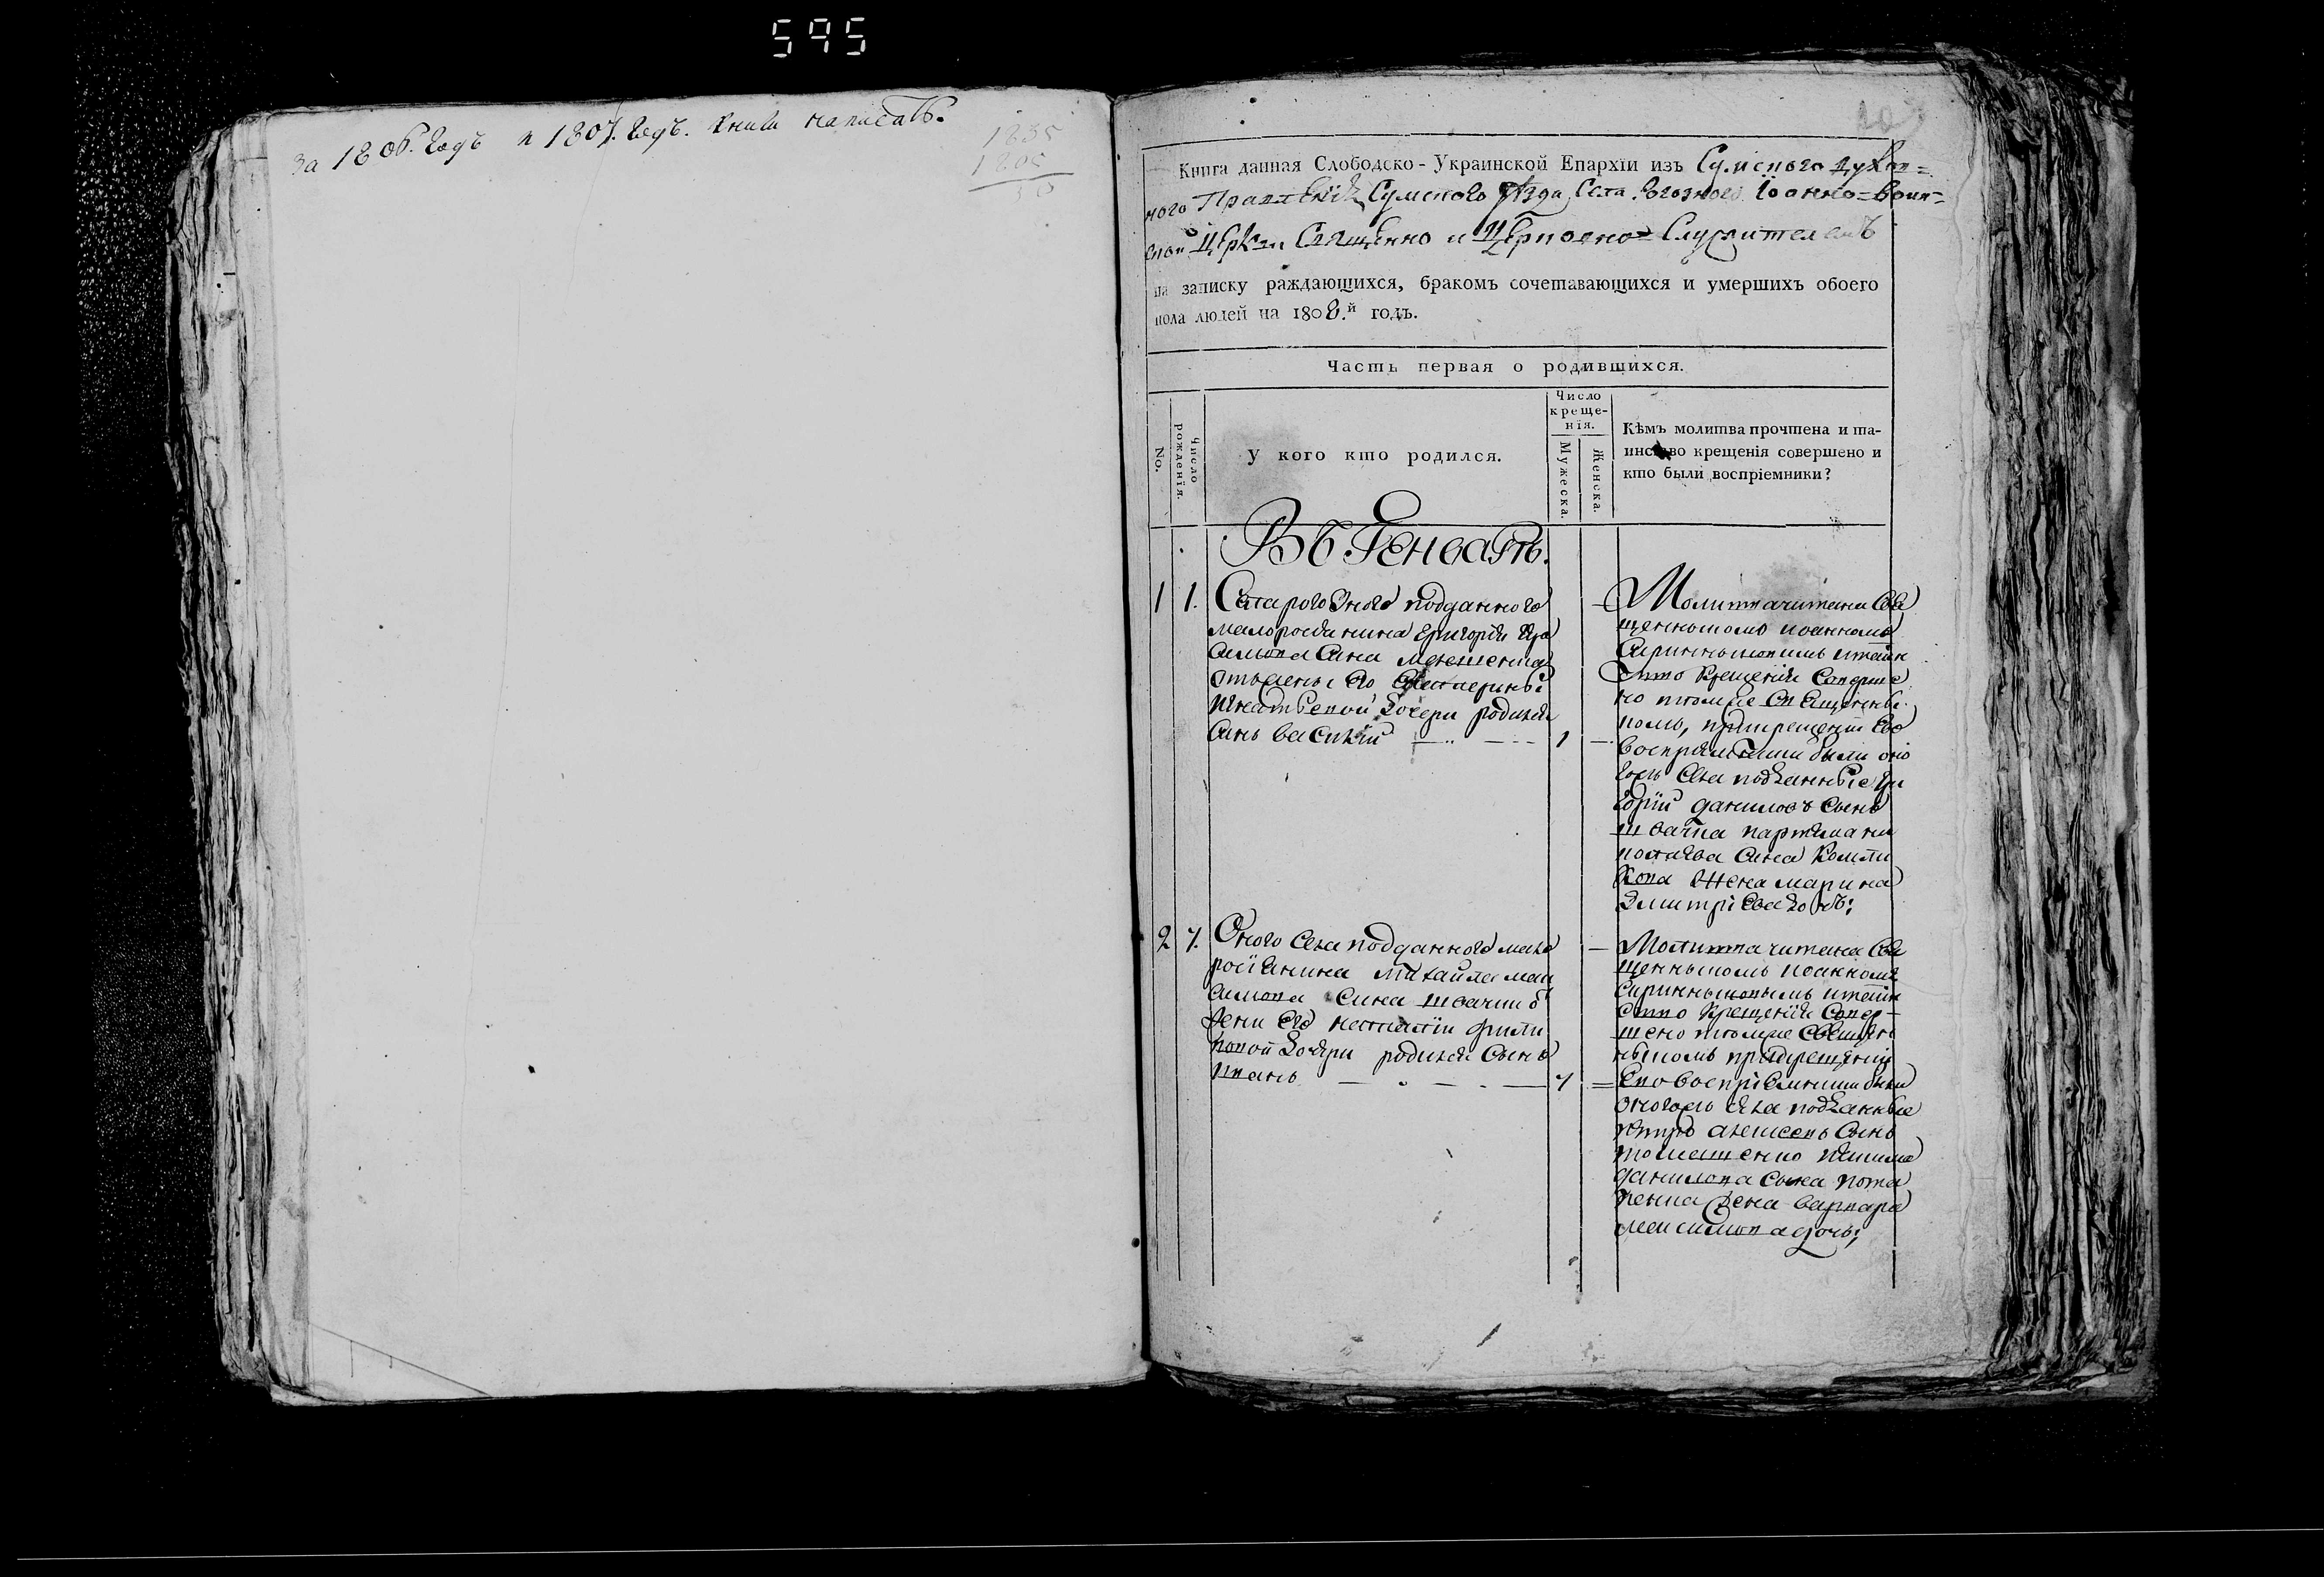 595
за 1806. годъ и 1807. годъ. книги написать.
1835
1805
30
Книга данная Слободско-Украинской Епархіи изъ Сумского духов=
ного Правленія Сумского уѣзда Села Рогозного Іоанно=воин=
ской Церкви Священно и Церковно=Служителемъ
на записку раждающихся, бракомъ сочетавающихся и умершихъ обоего
пола людей на 1808.й годъ.
Часть первая о родившихся.
No.
Число рожденія.
у кого кто родился.
Число креще-нія.
Мужеска.
Женска.
Кѣмъ молитва прочтена и та-
инство крещенія совершено и
кто были воспріемники?
Въ Генварѣ.
1 1. Села рогозного подданного
малоросіанина григорія
сина
жени его
дочери родился
Синъ василій — 1 —
Молитва читана Свя
щенникомъ иоанномъ
итаин
ство крещенія соверше
но тѣмже священни
комъ, при крещеніи его
воспріемники были оно
гожъ села подданные гри
горій даниловъ сынъ
сина
жена марина
дмитріева дочь;
2 7. Оного села подданного мало
росіянина михайла мак
симова сина
жени его наталіи фили
повой дочери родился сынъ
иванъ — 7 —
Молитва читана свя
щенникомъ иоанномъ
итаин
ство крещенія совер-
шено тѣмже священ
никомъ при крещеніи
его воспріемники были
оногожъ села подданные
петръ алексеевъ сынъ
данилова сина пота
пенка жена варвара
максимова дочь;